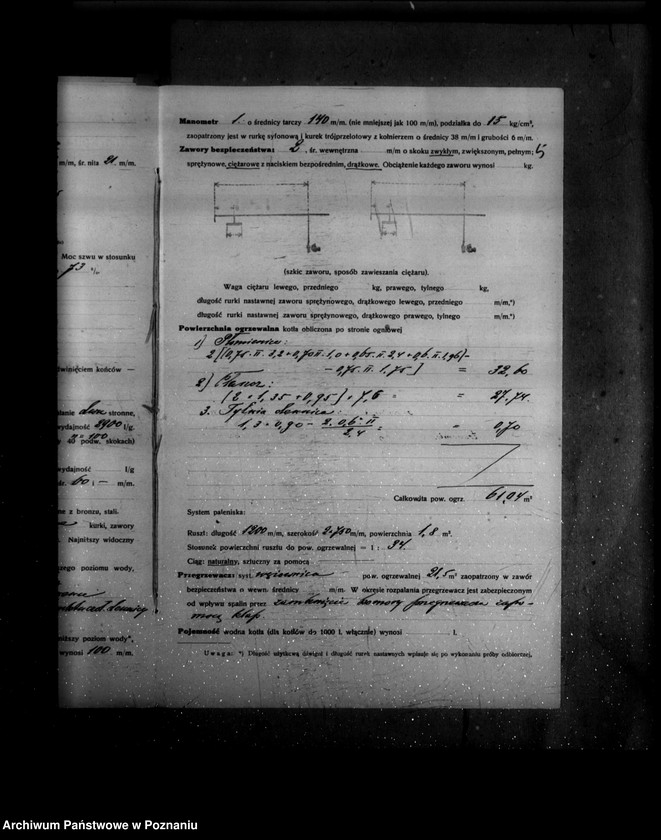 m/m, śr. nita 21 m/m.
Moc szwu w stosunku
73 %
winięciem końców —
stronne,
wydajność 2900 l/g.
40 podw. skokach)
wydajność l/g
śr. 60 — m/m.
ne z bronzu, stali.
kurki, zawory
. Najniższy widoczny
szego poziomu wody,
niższy poziom wody",
wynosi 100 m/m.
Manometr 1. o średnicy tarczy 140 m/m. (nie mniejszej jak 100 m/m), podziałka do 15 kg/cm²,
zaopatrzony jest w rurkę syfonową i kurek trójprzelotowy z kołnierzem o średnicy 38 m/m i grubości 6 m/m.
Zawory bezpieczeństwa: 2, śr. wewnętrzna m/m o skoku zwykłym, zwiększonym, pełnym;
sprężynowe, ciężarowe z naciskiem bezpośrednim, drążkowe. Obciążenie każdego zaworu wynosi kg.
(szkic zaworu, sposób zawieszania ciężaru).
Waga ciężaru lewego, przedniego kg, prawego, tylnego kg,
długość rurki nastawnej zaworu sprężynowego, drążkowego lewego, przedniego m/m.*)
długość rurki nastawnej zaworu sprężynowego, drążkowego prawego, tylnego m/m.*)
Powierzchnia ogrzewalna kotła obliczona po stronie ogniowej
1) Płomienice:
2 [(0,75. π. 3,2 + 0,70 π. 1,0 + 0,65. π. 2,4 + 0,6. π. 1,96) -
- 0,75. π. 1,75] = 32,60
2) Płaszcz:
(2 + 1,35 + 0,95) + 7,6 = 27,74
3. Tylnia dennica:
1,3 + 0,90 - 2. 0,6² π / 2,4 = 0,70
Całkowita pow. ogrz. 61,04 m²
System paleniska:
Ruszt: długość 1200 m/m, szerokość 2×750 m/m, powierzchnia 1,8 m².
Stosunek powierzchni rusztu do pow. ogrzewalnej = 1 : 34
Ciąg: naturalny, sztuczny za pomocą
Przegrzewacz: syst. wężownica pow. ogrzewalnej 21,5 m² zaopatrzony w zawór
bezpieczeństwa o wewn. średnicy m/m. W okresie rozpalania przegrzewacz jest zabezpieczonym
od wpływu spalin przez zamknięcie komory przegrzewacza zapo-
mocą klap.
Pojemność wodna kotła (dla kotłów do 1000 l. włącznie) wynosi l.
Uwaga: *) Długość użytkową dźwigni i długość rurek nastawnych wpisuje się po wykonaniu próby odbiorczej.
Archiwum Państwowe w Poznaniu